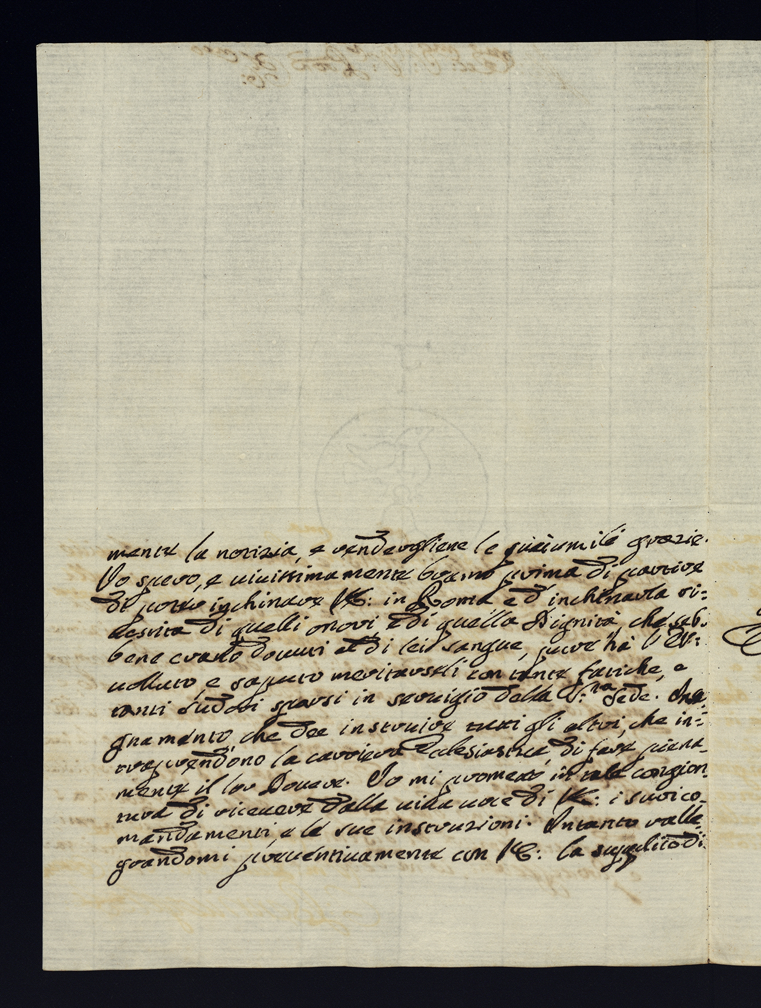 mente la notizia, e rendergliene le più umili grazie.
Io spero, e vivissimamente bramo prima di partire
di poter inchinare V.E: in Roma e d'inchinarla ri-
vestita di quelli onori e di quella Dignità, che seb-
bene erano dovuti al di lei sangue, pure hà l'E.V:
voluto, e saputo meritarseli con tante fatiche, e
tanti sudori sparsi in servigio della S.ta Sede. Inse-
gnamento, che dee instruire tutti gli altri, che in-
traprendono la carriera Eclesiastica, di fare piena-
mente il lor Dovere. Io mi prometto in tale congion-
tura di ricevere dalla viva voce di V.E: i suoi co-
mandamenti, e le sue instruzioni. Intanto ralle-
grandomi preventivamente con V.E: la supplico di